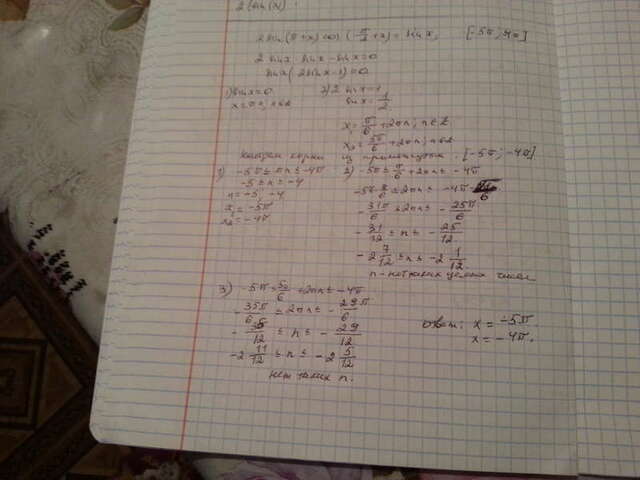 2 sin(π+x) cos(π/2+x) = sin x, [-5π; -4π]
2 sin x · sin x - sin x = 0
sin x (2 sin x - 1) = 0
1) sin x = 0 2) 2 sin x = 1
x = πn, n∈Z sin x = 1/2
x₁ = π/6 + 2πn, n∈Z
x₂ = 5π/6 + 2πn, n∈Z
корни из промежутка [-5π; -4π]
1) -5π ≤ πn ≤ -4π 2) -5π ≤ π/6 + 2πn ≤ -4π
-5 ≤ n ≤ -4
n = -5; -4
x₁ = -5π
x₂ = -4π
-31π/6 ≤ 2πn ≤ -25π/6
-31/12 ≤ n ≤ -25/12
-2 7/12 ≤ n ≤ -2 1/12
n - нет таких целых чисел
3) -5π ≤ 5π/6 + 2πn ≤ -4π
-35π/6 ≤ 2πn ≤ -29π/6
-35/12 ≤ n ≤ -29/12
-2 11/12 ≤ n ≤ -2 5/12
нет таких n.
ответ: x = -5π
x = -4π.